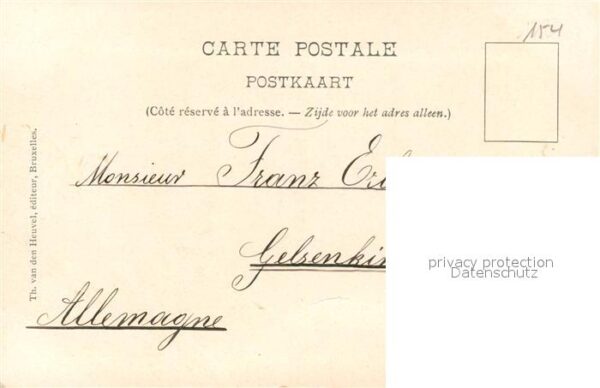 154
CARTE POSTALE
POSTKAART
(Côté réservé à l'adresse. — Zijde voor het adres alleen.)
Monsieur Franz
Allemagne
Th. van den Heuvel, éditeur, Bruxelles.
privacy protection
Datenschutz